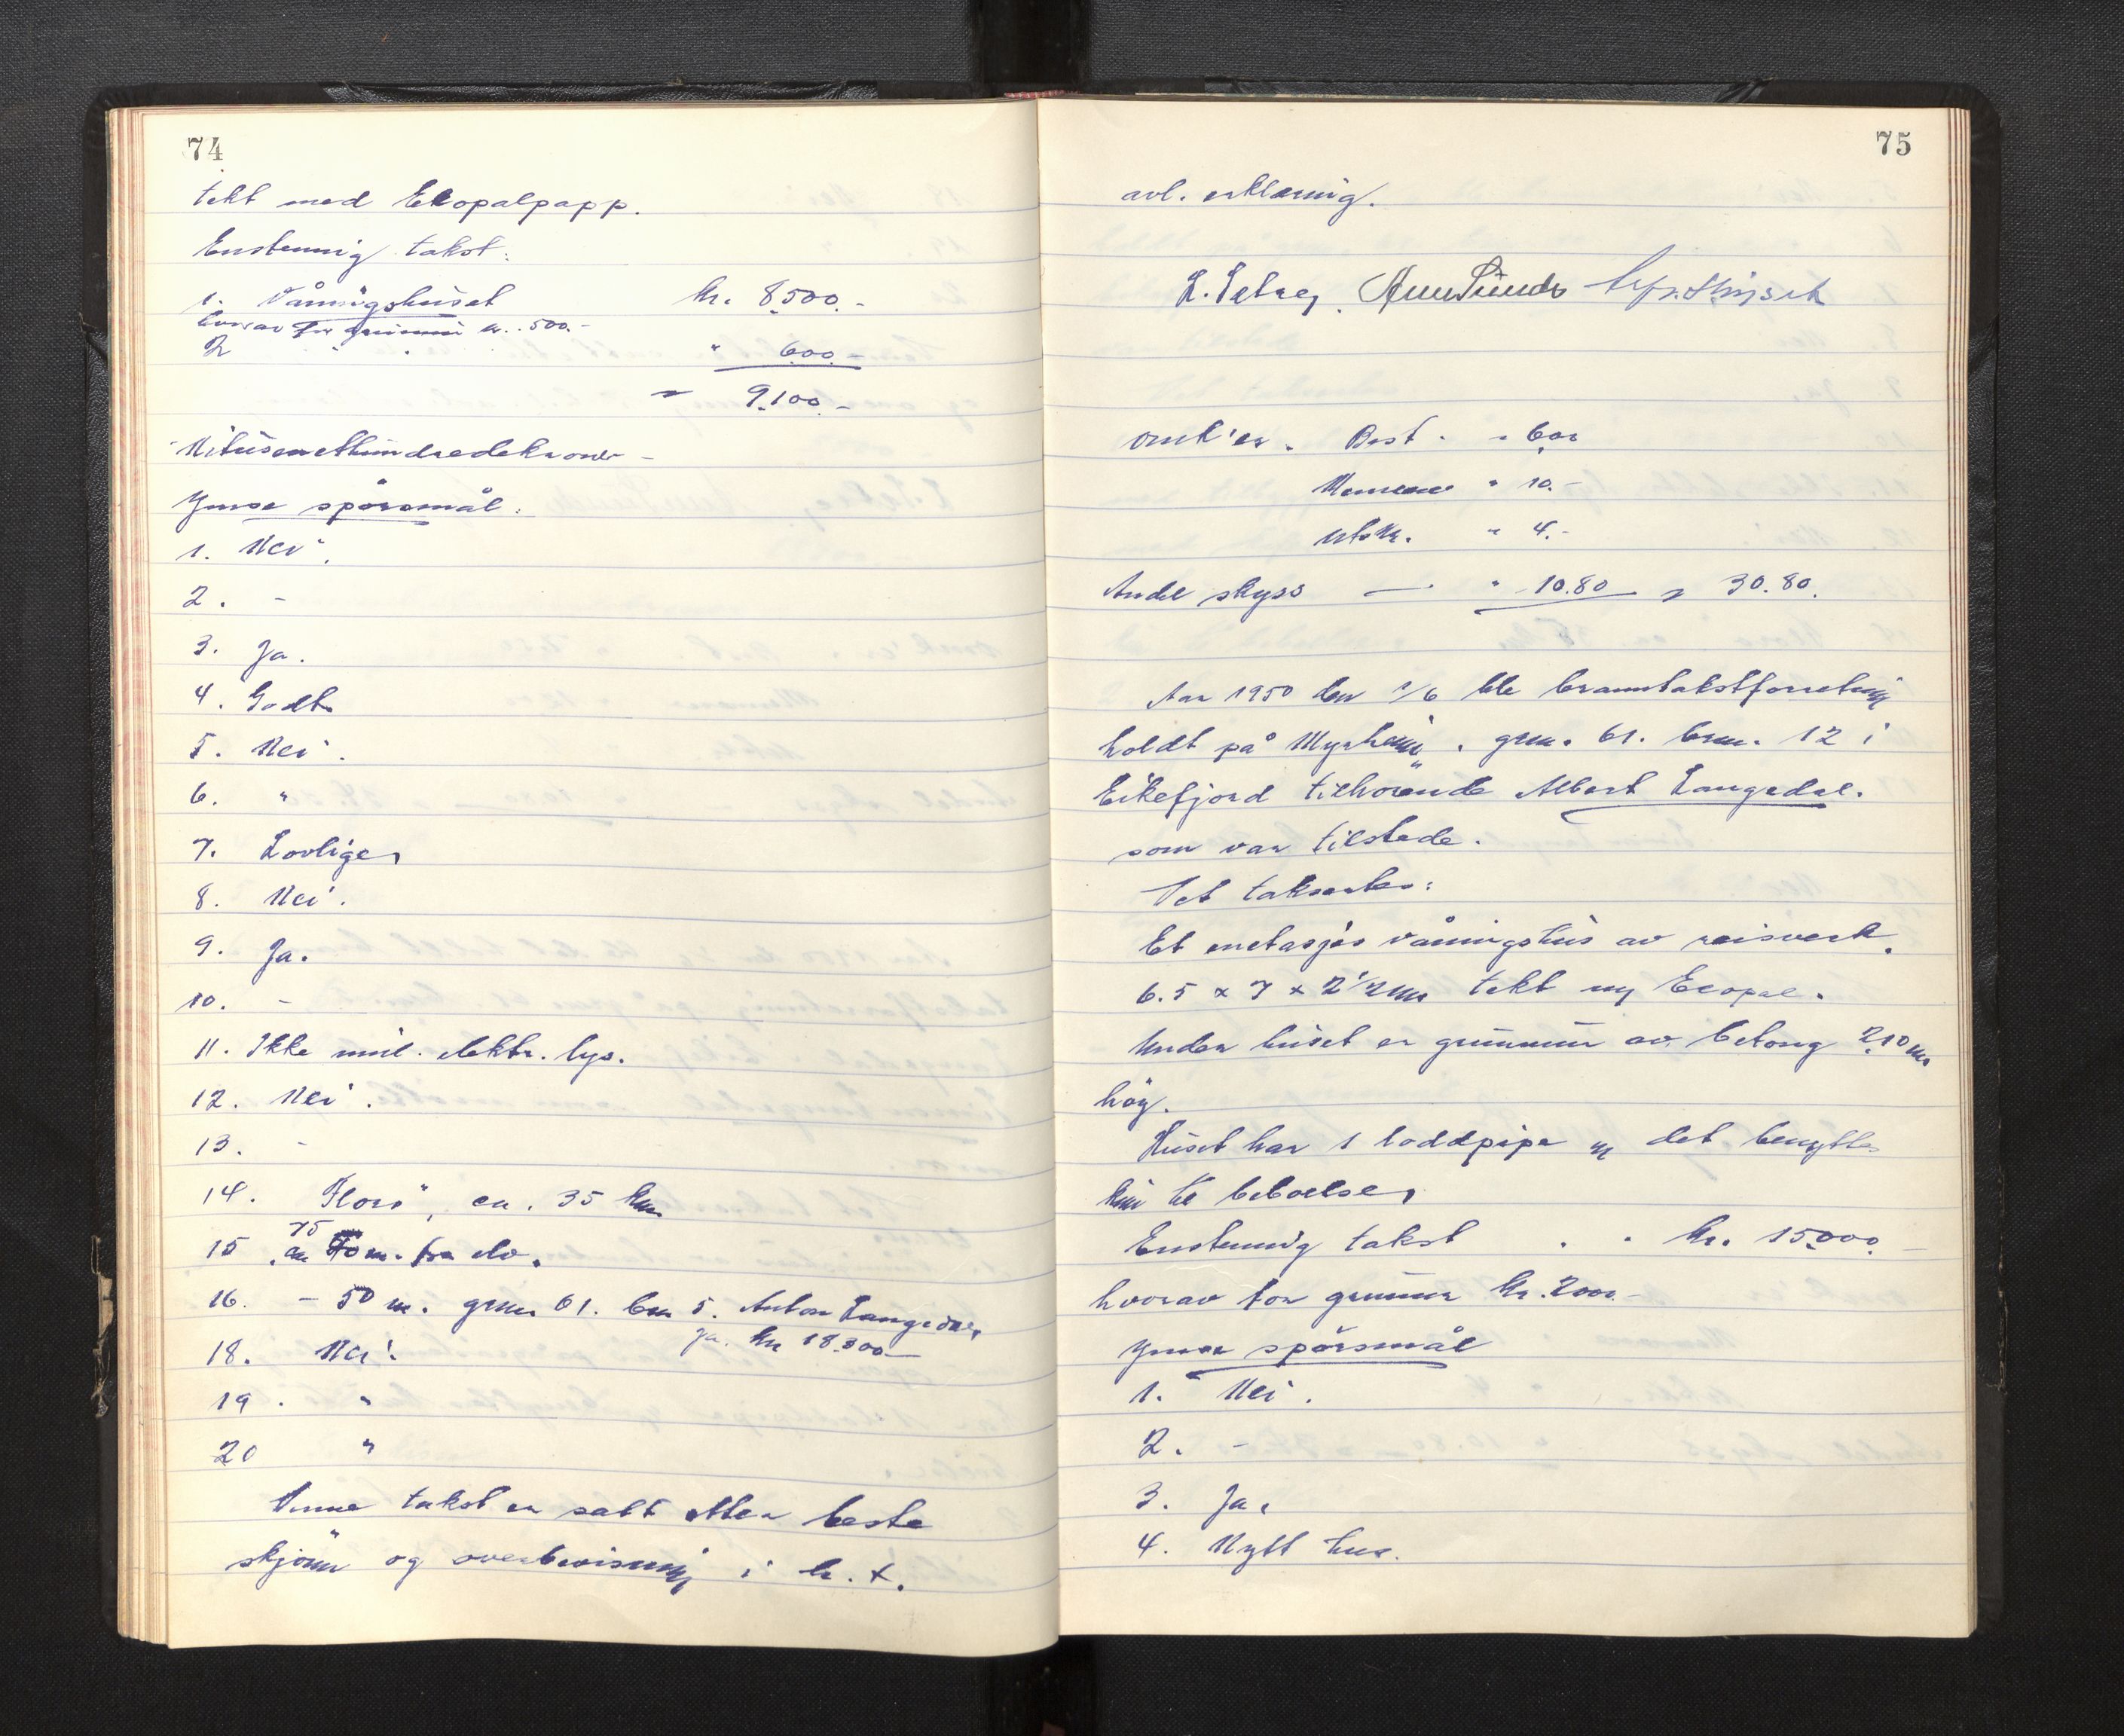 74
tekt med Ekopalpapp.
Enstemmig takst:
1. Våningshuset kr. 8500.-
hvorav for grunnmur kr. 500.-
2 " " " 600.-
" 9.100.-
Nitusenetthundredekroner -
Ymse spörsmål:
1. Nei.
2. -
3. Ja.
4. Godt
5. Nei.
6. "
7. Lovlige
8. Nei.
9. Ja.
10. -
11. Ikke mil. elektr. lys.
12. Nei.
13. -
14. Florö, ca. 35 km
15. ca 75 m. fra elv.
16. - 50 m. grnr. 61. bnr 5. Anton Langedal
ja. kr 18.300.-
18. Nei.
19. "
20 "
Denne takst er satt etter beste
skjönn og overbevisning i h. t.
75
avl. erklæring.
omk'er. Best. " 6.00
Mennene " 10.-
utskr. " 4.-
Andel skyss — " 10.80 " 30.80.
Aar 1950 den 2/6 ble branntakstforretning
holdt på Myrheim, grnr. 61. brnr. 12 i
Eikefjord tilhörende Albert Langedal.
som var tilstede.
Det taksertes:
Et enetasjes våningshus av reisverk.
6.5 x 7 x 2 1/2 m tekt m/ Ecopal.
Under huset er grunnmur av betong 2.10 m
höy.
Huset har 1 loddpipe og det benyttes
kun til beboelse,
Enstemmig takst . . kr. 15.000.-
hvorav for grunnmur kr. 2000.-
Ymse spörsmål
1. Nei.
2. -
3. Ja,
4. Nytt hus.